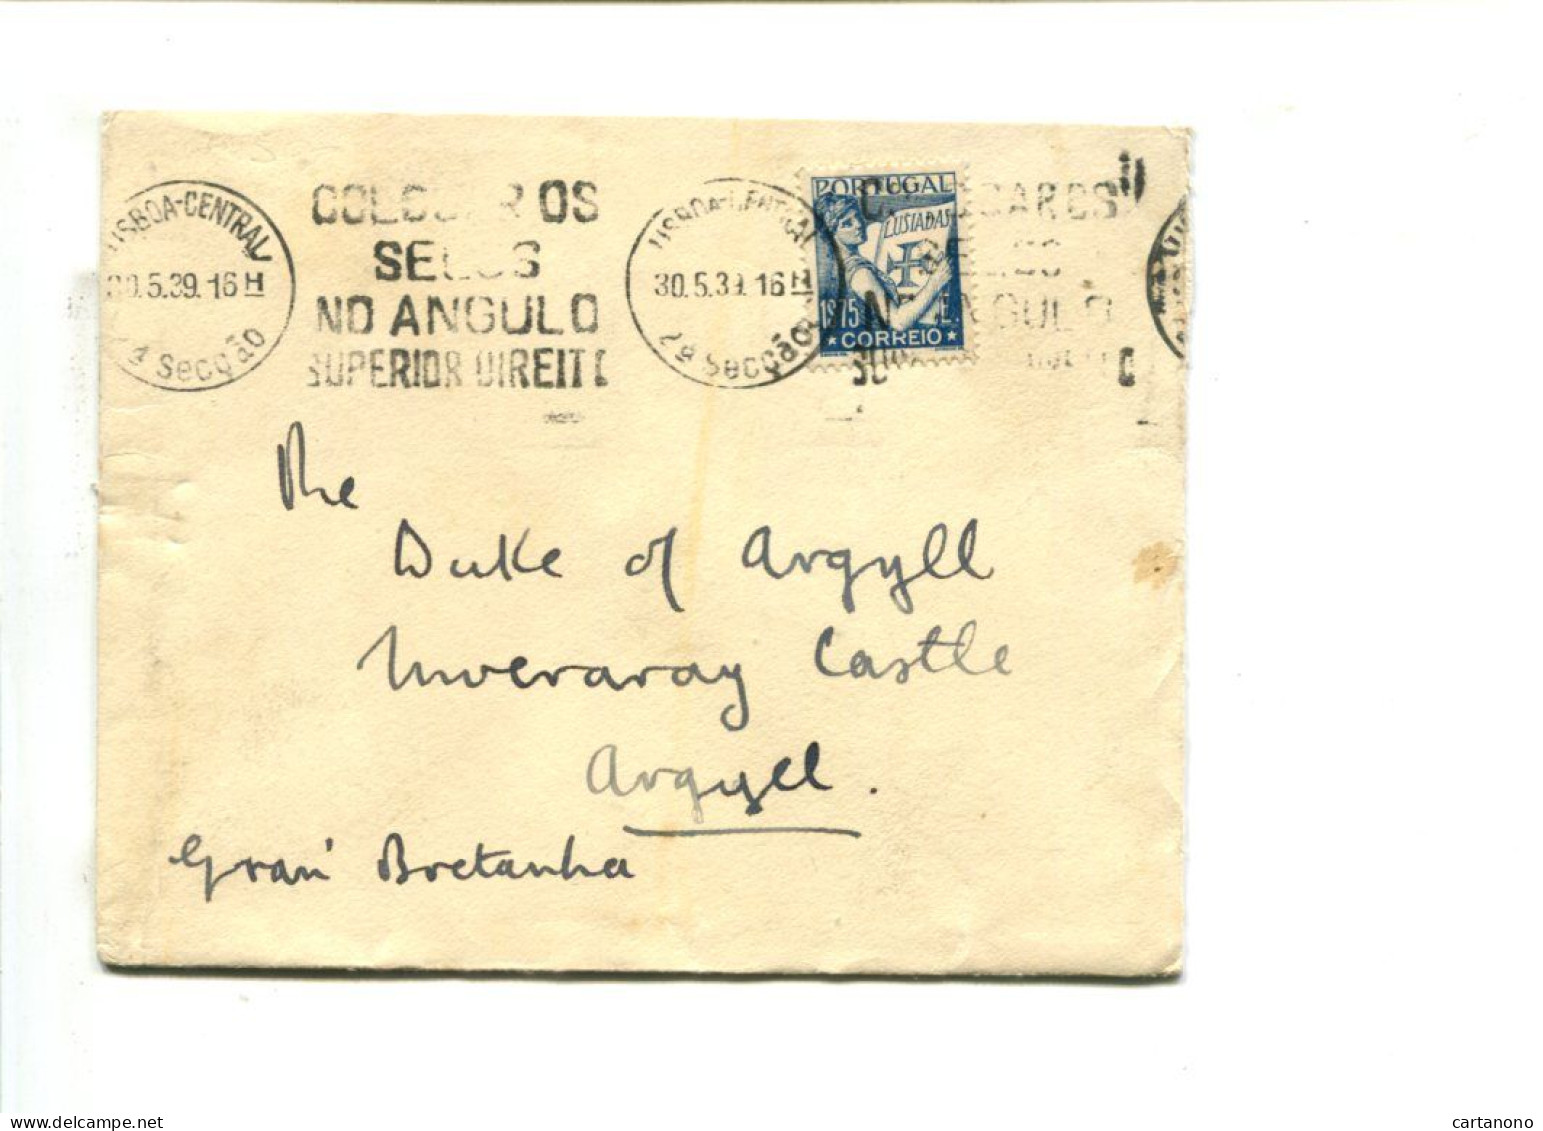 LISBOA-CENTRAL
30.5.39. 16 H
2ª Secção
COLOCAR OS
SELOS
NO ANGULO
SUPERIOR DIREITO
LISBOA-CENTRAL
30.5.39. 16 H
2ª Secção
PORTUGAL
LUSIADAS
1$75 E.
CORREIO
COLOCAR OS
SELOS
NO ANGULO
The
Duke of Argyll
Inveraray Castle
Argyll.
Gran' Bretanha
cartanono